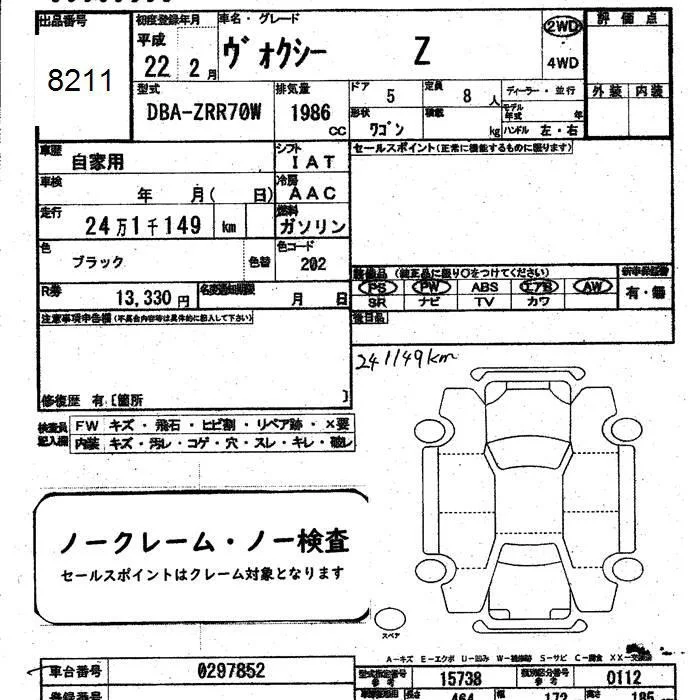 出品番号
8211
初度登録年月
平成
22 2月
車名・グレード
ヴォクシー Z
2WD
4WD
評価点
外装 内装
型式
DBA-ZRR70W
排気量
1986
cc
ドア
5
定員
8 人
形状
ワゴン
積載
kg
ディーラー・並行
モデル年式 年
ハンドル 左・右
車歴
自家用
シフト
IAT
セールスポイント(正常に機能するものに限ります)
車検
年 月( 日)
冷房
AAC
走行
24万1千149 km
燃料
ガソリン
色
ブラック
色替
色コード
202
R券
13,330円
名変通知期限
月 日
装備品 (純正品に限り○をつけてください)
PS PW ABS エアB AW
SR ナビ TV カワ
新車保証書
有・無
後日品
注意事項申告欄(不具合内容等は具体的に記入して下さい)
修復歴 有〔箇所 〕
241149km
検査員
記入欄
FW キズ・飛石・ヒビ割・リペア跡・×要
内装 キズ・汚レ・コゲ・穴・スレ・キレ・破レ
ノークレーム・ノー検査
セールスポイントはクレーム対象となります
スペア
A-キズ E-エクボ U-凹み W-補修跡 S-サビ C-腐食 XX-交換済
車台番号
0297852
型式指定番号
参考
15738
類別区分番号
参考
0112
登録番号
長さ
464
幅
172
高さ
185